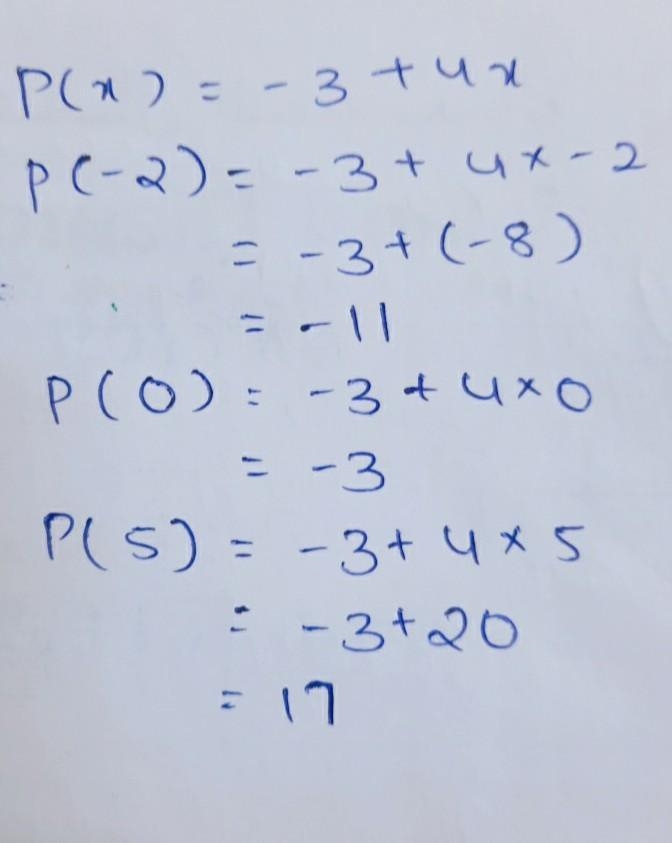 P(x) = -3 + 4x
P(-2) = -3 + 4 × -2
= -3 + (-8)
= -11
P(0) = -3 + 4 × 0
= -3
P(5) = -3 + 4 × 5
= -3 + 20
= 17